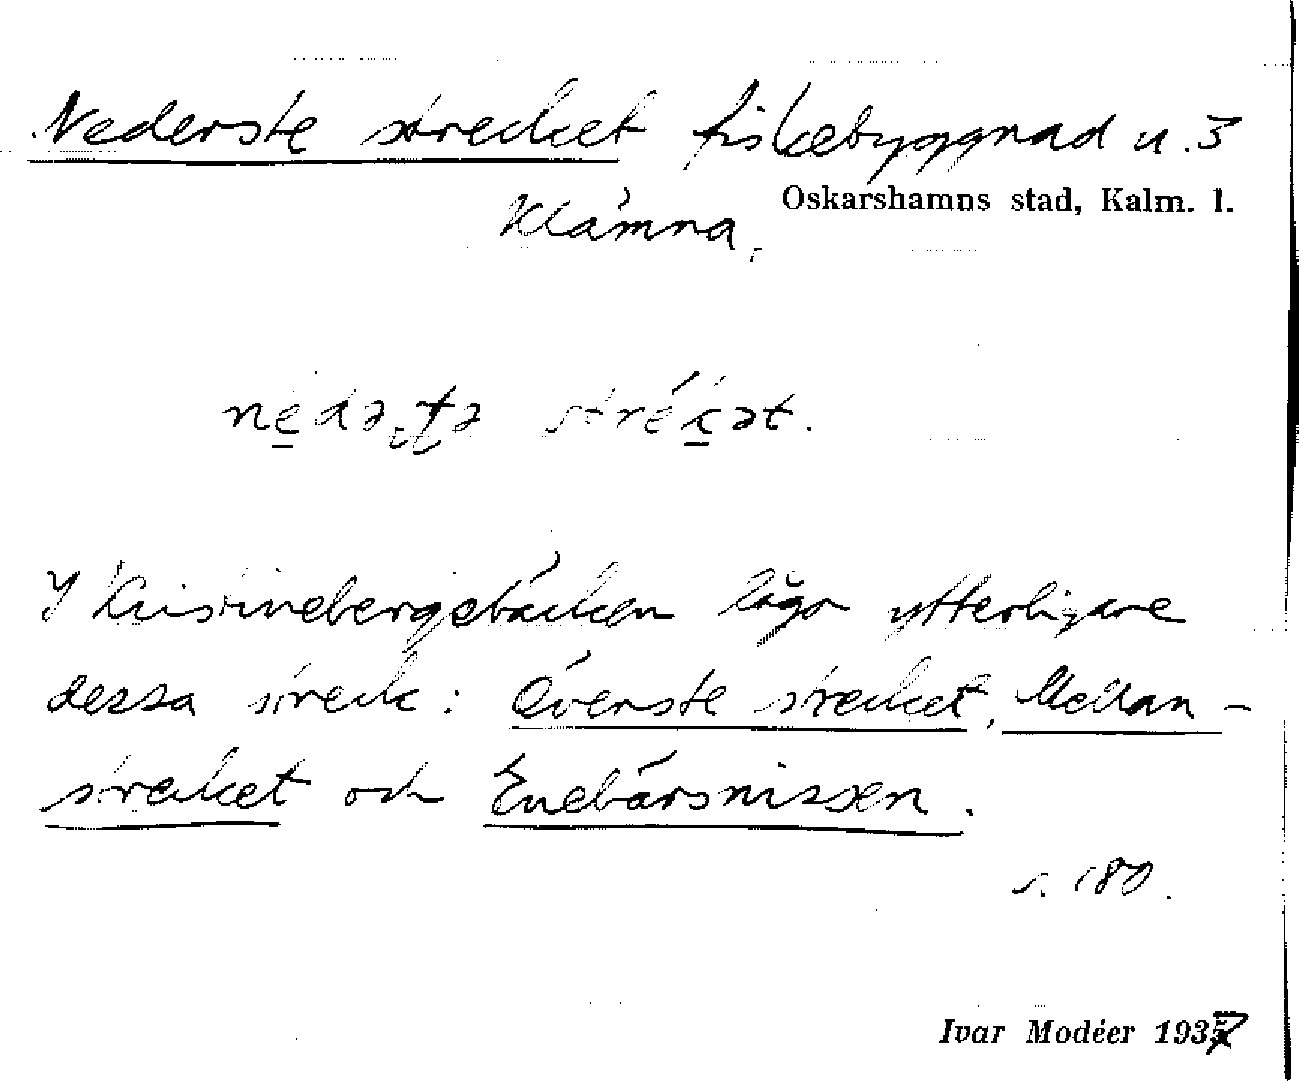 Nederste strecket fiskebyggnad u. 3
Oskarshamns stad, Kalm. l.
Klämna.
strékət.
I Kristinebergsbäcken lågo ytterligare
dessa streck: Överste strecket, Mellan-
strecket och Enebärsnissen.
s. 180.
Ivar Modéer 1937